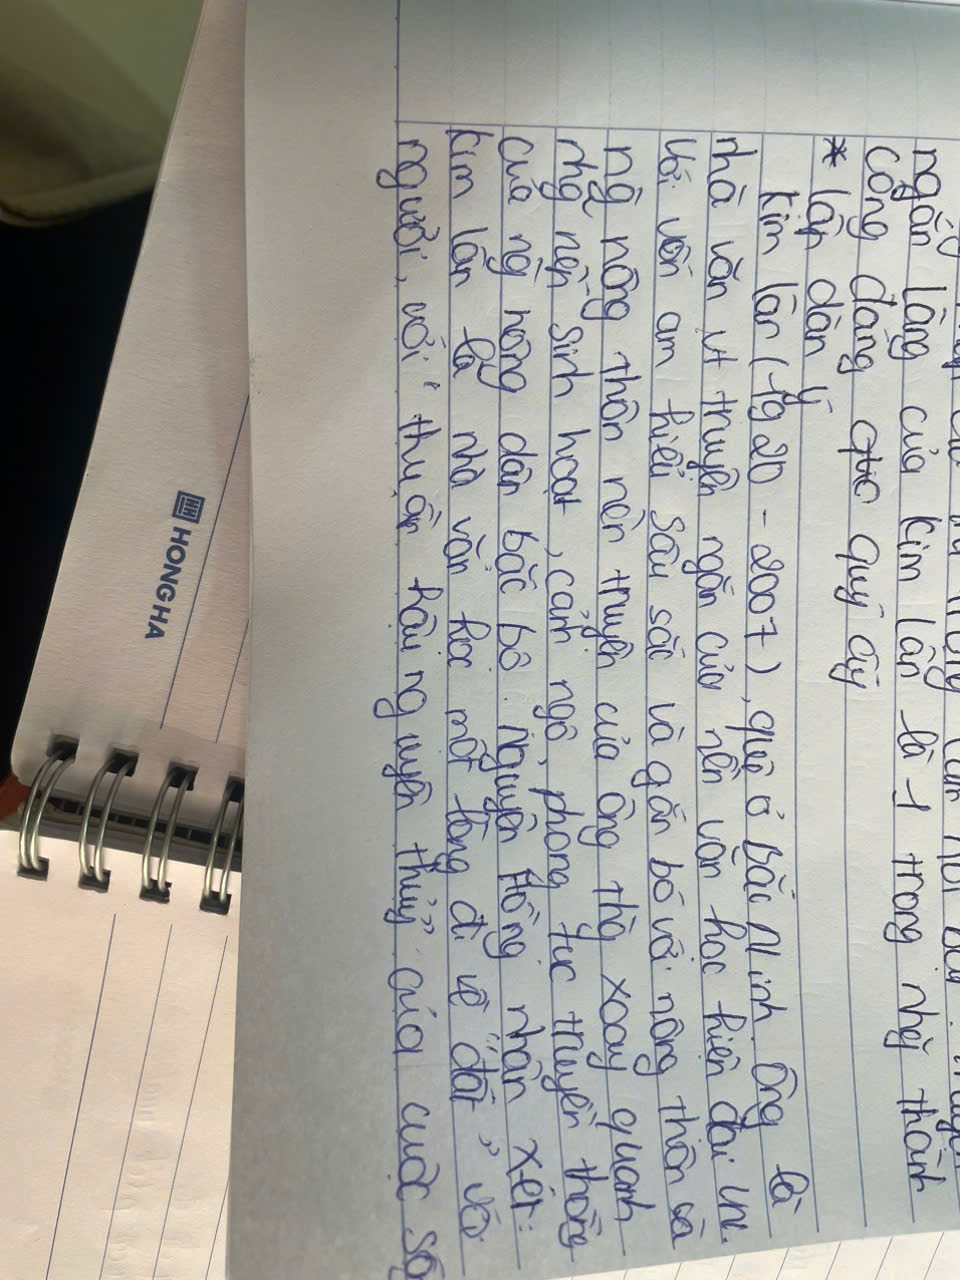 ngắn làng của Kim Lân là 1 trong nhg thành
công đáng quý ấy
* Lập dàn ý
Kim Lân (1920 - 2007), quê ở Bắc Ninh. Ông là
nhà văn vt truyện ngắn của nền văn học hiện đại VN.
Với vốn am hiểu sâu sắc và gắn bó với nông thôn và
ng nông thôn nên truyện của ông thg xoay quanh
nhg nền sinh hoạt, cảnh ngộ, phong tục truyền thống
của ng nông dân Bắc Bộ. Nguyên Hồng nhận xét:
Kim Lân là nhà văn học một lòng đi về "đất", với
người, với "thuần hậu nguyên thủy" của cuộc số
HONG HA